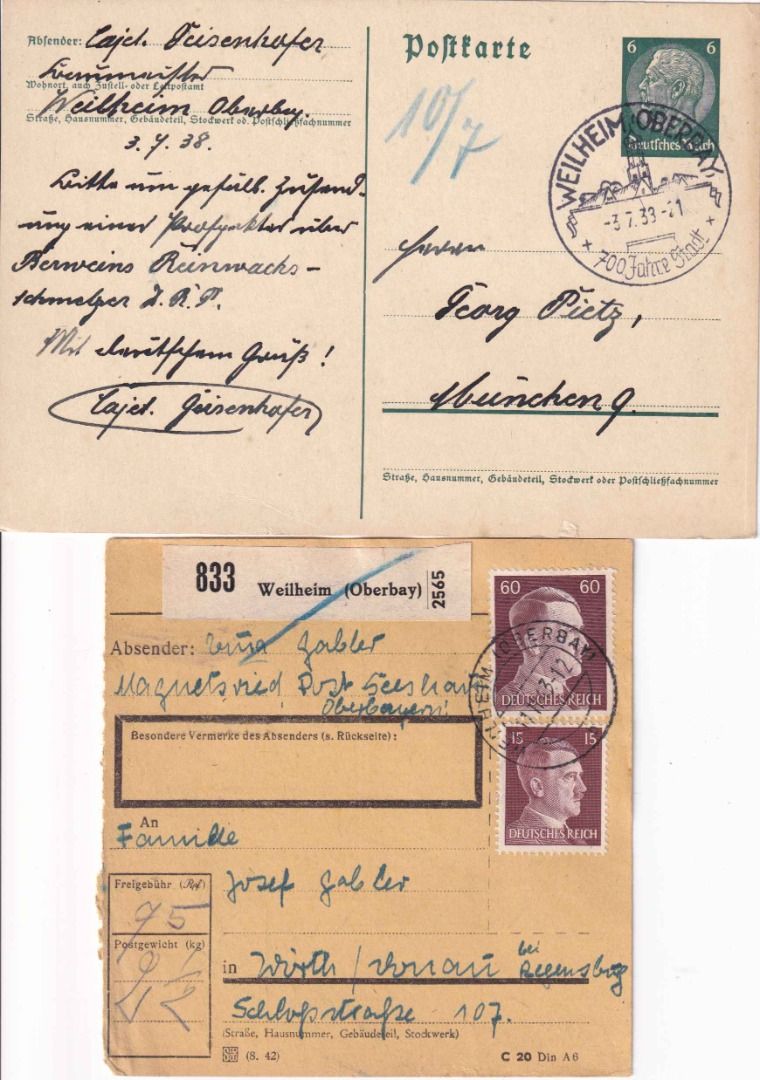 Absender: Cajet. Geisenhofer
Baumeister
Wohnort, auch Zustell- oder Leitpostamt
Weilheim Oberbay.
Straße, Hausnummer, Gebäudeteil, Stockwerk od. Postschließfachnummer
3. 7. 38.
Bitte um gefäll. Zusend-
ung eines Prospektes über
Berweins Reinwachs-
schmelzer D. R. P.
Mit deutschem Gruß!
Cajet. Geisenhofer
Postkarte
10/7
6 6
Deutsches Reich
WEILHEIM (OBERBAY)
-3.7.38-21
+ 700 Jahre Stadt +
Herrn
Georg Pietz,
München 9.
Straße, Hausnummer, Gebäudeteil, Stockwerk oder Postschließfachnummer
833 Weilheim (Oberbay) 2565
60 60
DEUTSCHES REICH
WEILHEIM (OBERBAY)
15 15
DEUTSCHES REICH
Absender: Gabler
Magnetsried Post Seeshaupt
Oberbayern!
Besondere Vermerke des Absenders (s. Rückseite):
An
Familie
Josef Gabler
Freigebühr (Rpf)
75
Postgewicht (kg)
in Wörth / Donau bei Regensburg
Schloßstraße 107.
(Straße, Hausnummer, Gebäudeteil, Stockwerk)
(8. 42) C 20 Din A6